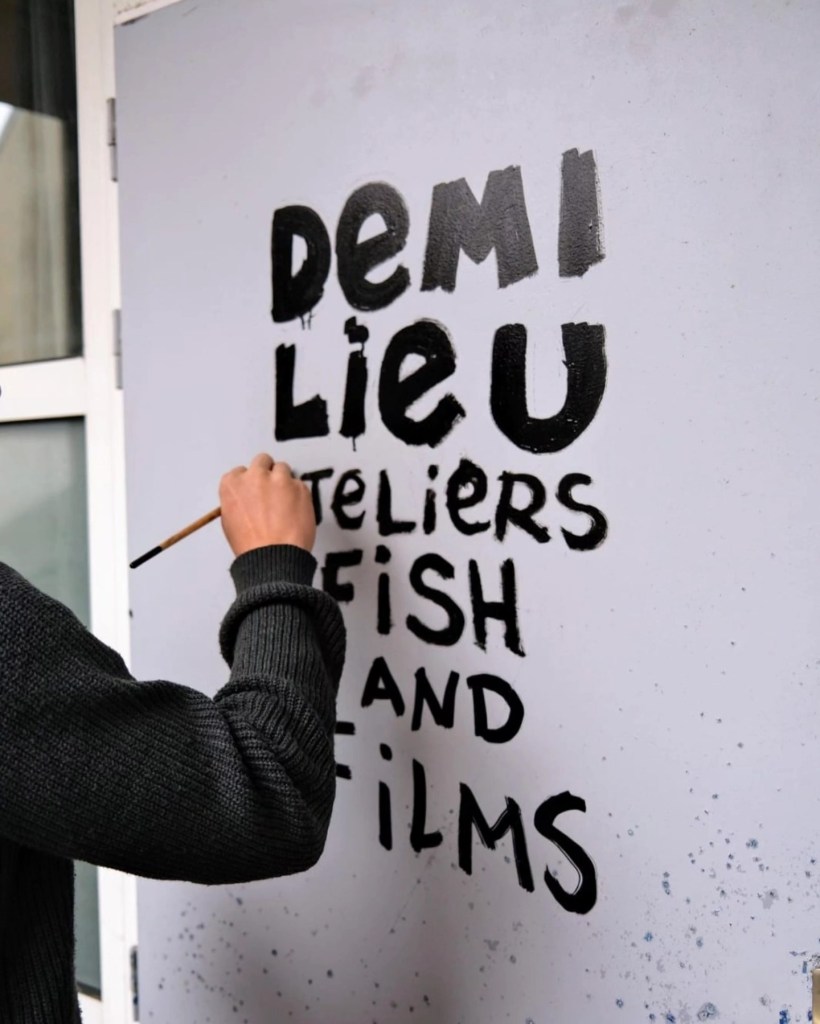 DeMI
LieU
ATeLieRS
FiSH
AND
FiLMS